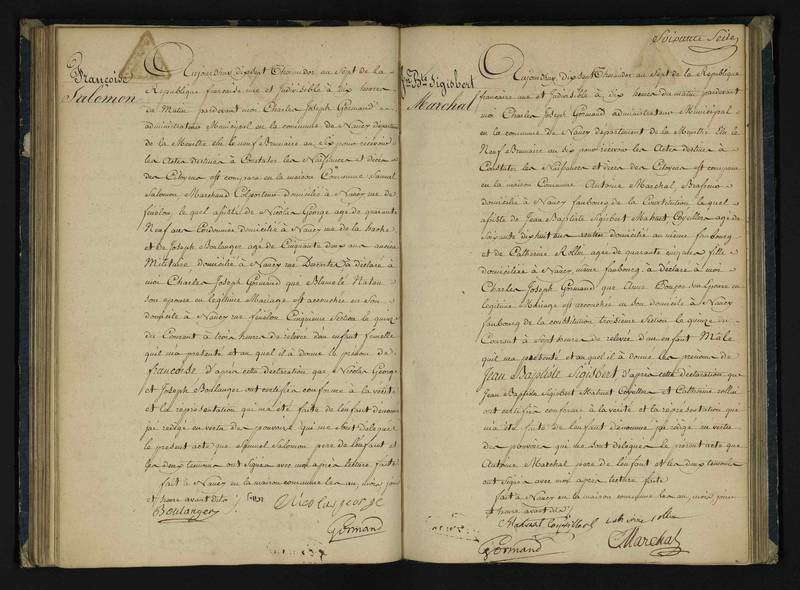 Françoise
Salomon
Aujourdhuy dixsept Thermidor au Sept de la
République française une et Indivisible à Dix heures
du Matin pardevant moi Charles Joseph Germand
administrateur Municipal en la commune de Nancy départem
de la Meurthe élu le neuf Brumaire an six pour recevoir
les actes destinés à Constater les Naissances et décès
des Citoyens est comparu en la maison Commune Samuel
Salomon Marchand Colporteur domicilié à Nancy rue de
fénélon, le quel assisté de Nicolas George agé de quarante
Neuf ans Cordonnier domicilié à Nancy rue de la hache
et de Joseph Boulanger agé de Cinquante deux ans ancien
Militaire domicilié à Nancy rue à déclaré à
moi Charles Joseph Germand que Blumelé Natan
son épouse en légitime Mariage est accouchée en Son
domicile à Nancy rue fénélon Cinquieme Section le quinze
du Courant à trois heures de relevée d'un enfant femelle
quil ma présenté et au quel il a donné le prénom de
françoise d'après cette déclaration que Nicolas George
et Joseph Boulanger ont certifié conforme à la vérité
et la représentation qui ma été faite de lenfant dénommé
jai rédigé en vertu des pouvoirs qui me sont délégués
le présent acte que Samuel Salomon pere de lenfant et
les deux temoins ont Signés avec moi après lecture faite
fait à Nancy en la maison commune les an, mois jour
et heure avant dits
Boulanger Nicolas george
Germand
Soixante Seize
Jn Bte Sigisbert
Marchal
Aujourdhuy dix sept Thermidor au Sept de la République
française une et Indivisible à dix heures du matin pardevant
moi Charles Joseph Germand administrateur Municipal
en la commune de Nancy département de la Meurthe élu le
Neuf Brumaire an six pour recevoir les actes destinés à
Constater les Naissances et décès des Citoyens est comparu
en la maison Commune Antoine Marchal, Brasseur
domicilié à Nancy faubourg de la Constitution, le quel
assisté de Jean Baptiste Sigisbert Mahuet agé de
Soixante dixhuit ans rentier domicilié au même faubourg
et de Catherine Rollin agée de quarante ans fille
domiciliée à Nancy, même faubourg à déclaré à moi
Charles Joseph Germand que Anne son épouse en
légitime Mariage est accouchée en son domicile à Nancy
faubourg de la constitution troisieme Section le quinze du
Courant à Sept heures de relevée d'un enfant Mâle
quil ma présenté et au quel il a donné les prénoms de
Jean Baptiste Sigisbert d'après cette déclaration que
Jean Baptiste Sigisbert Mahuet et Catherine rollin
ont certifié conforme à la vérité et la représentation qui
ma été faite de lenfant dénommé jai rédigé en vertu
des pouvoirs qui me sont délégués le présent acte que
Antoine Marchal pere de lenfant et les deux temoins
ont Signés avec moi après lecture faite
fait à Nancy en la maison commune les an, mois jour
et heure avant dits
Mahuet Catherine rollin
Germand Marchal